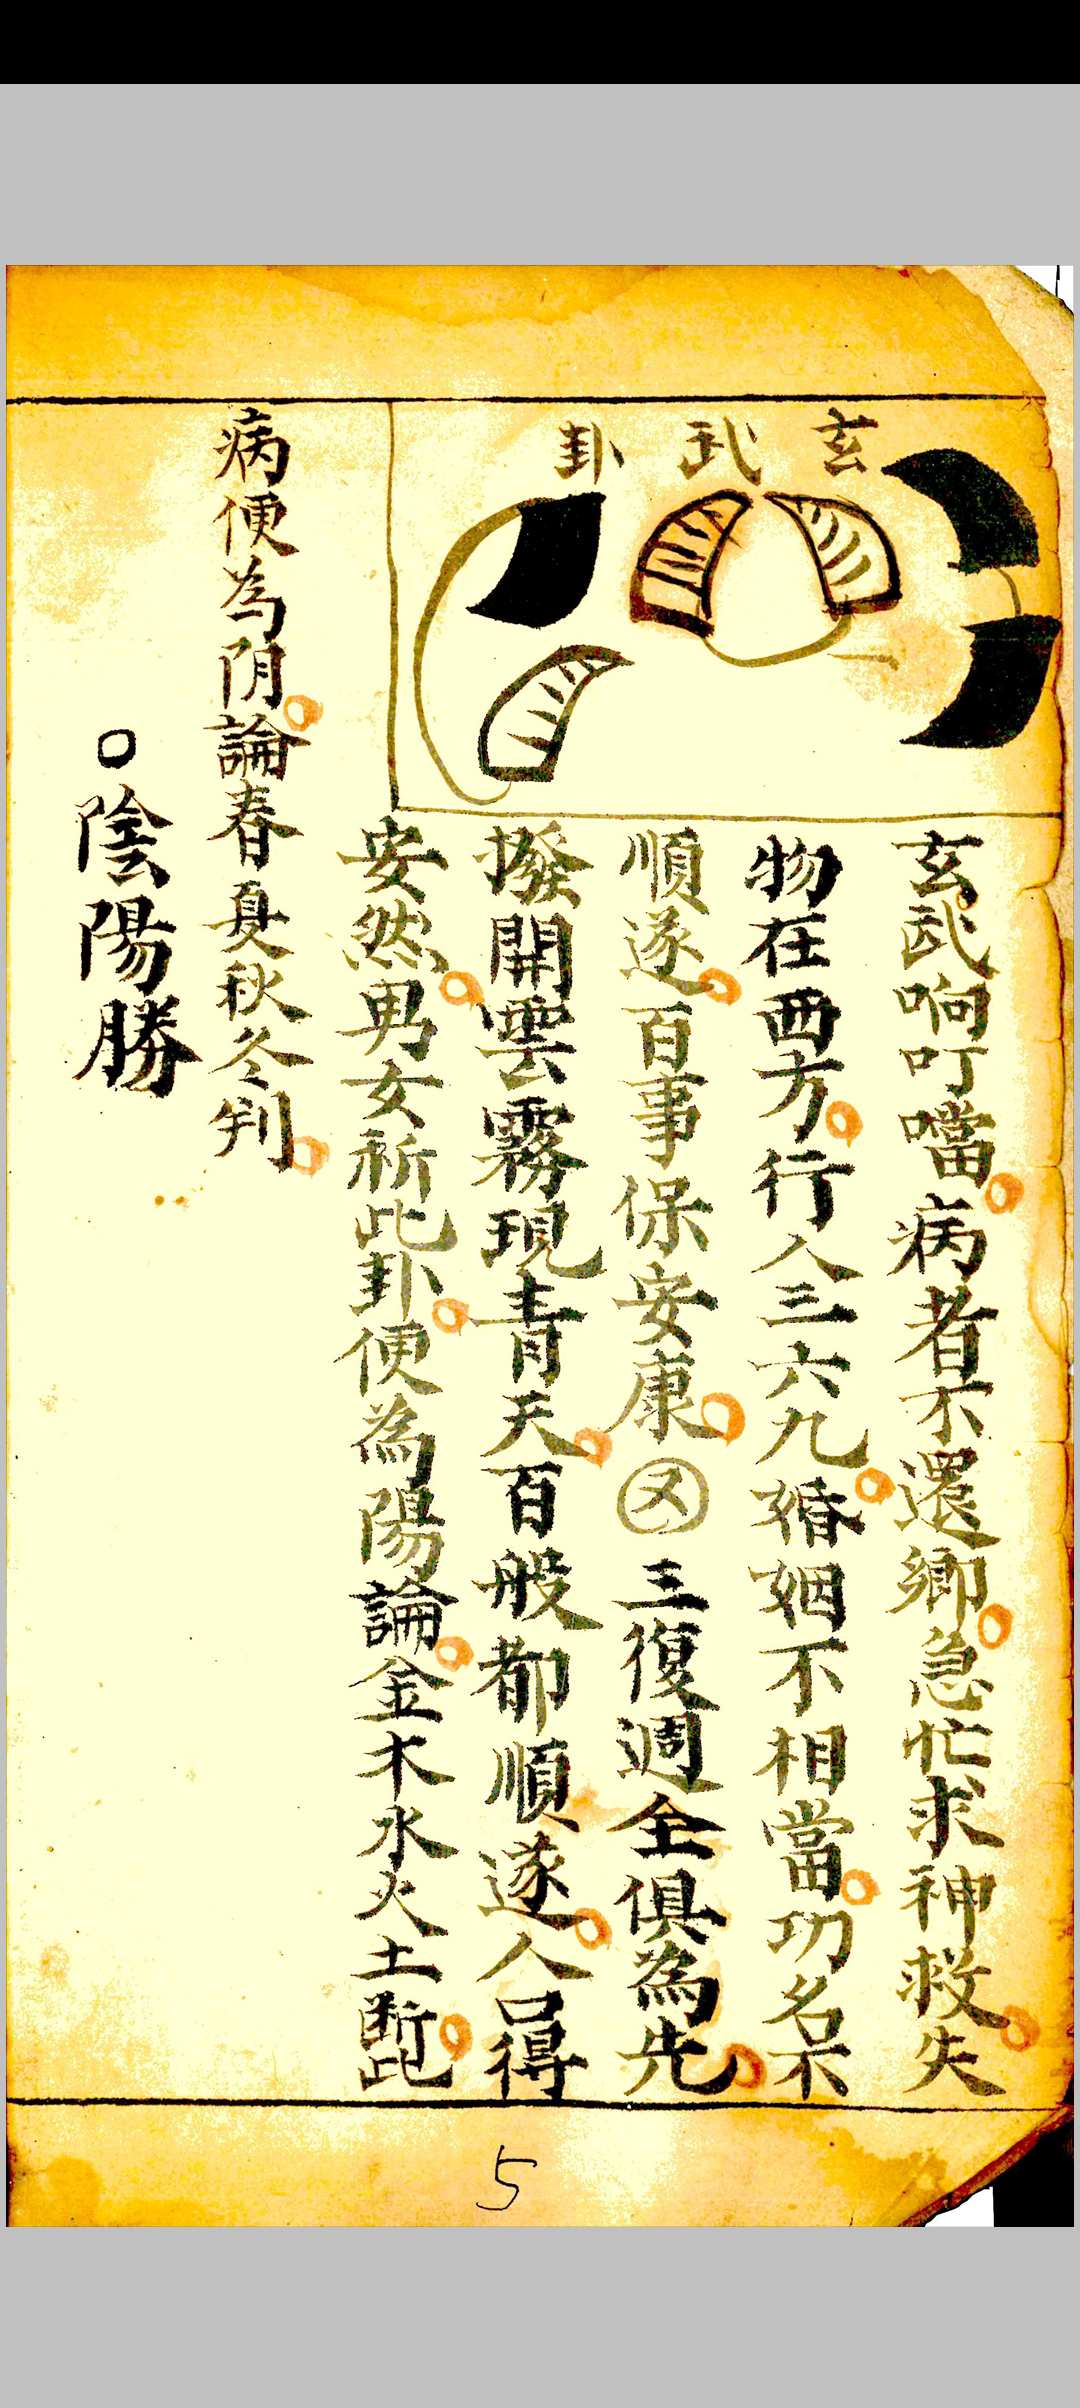 玄武卦
玄武响叮噹病者不還鄉急忙求神救失
物在西方行人三六九婚姻不相當功名不
順遂百事保安康又三復週全俱為先
撥開雲霧現青天百般都順遂人口得
安然男女祈此卦便為陽論金木水火土斷此
病便為阴論春夏秋冬判
○陰陽勝
5